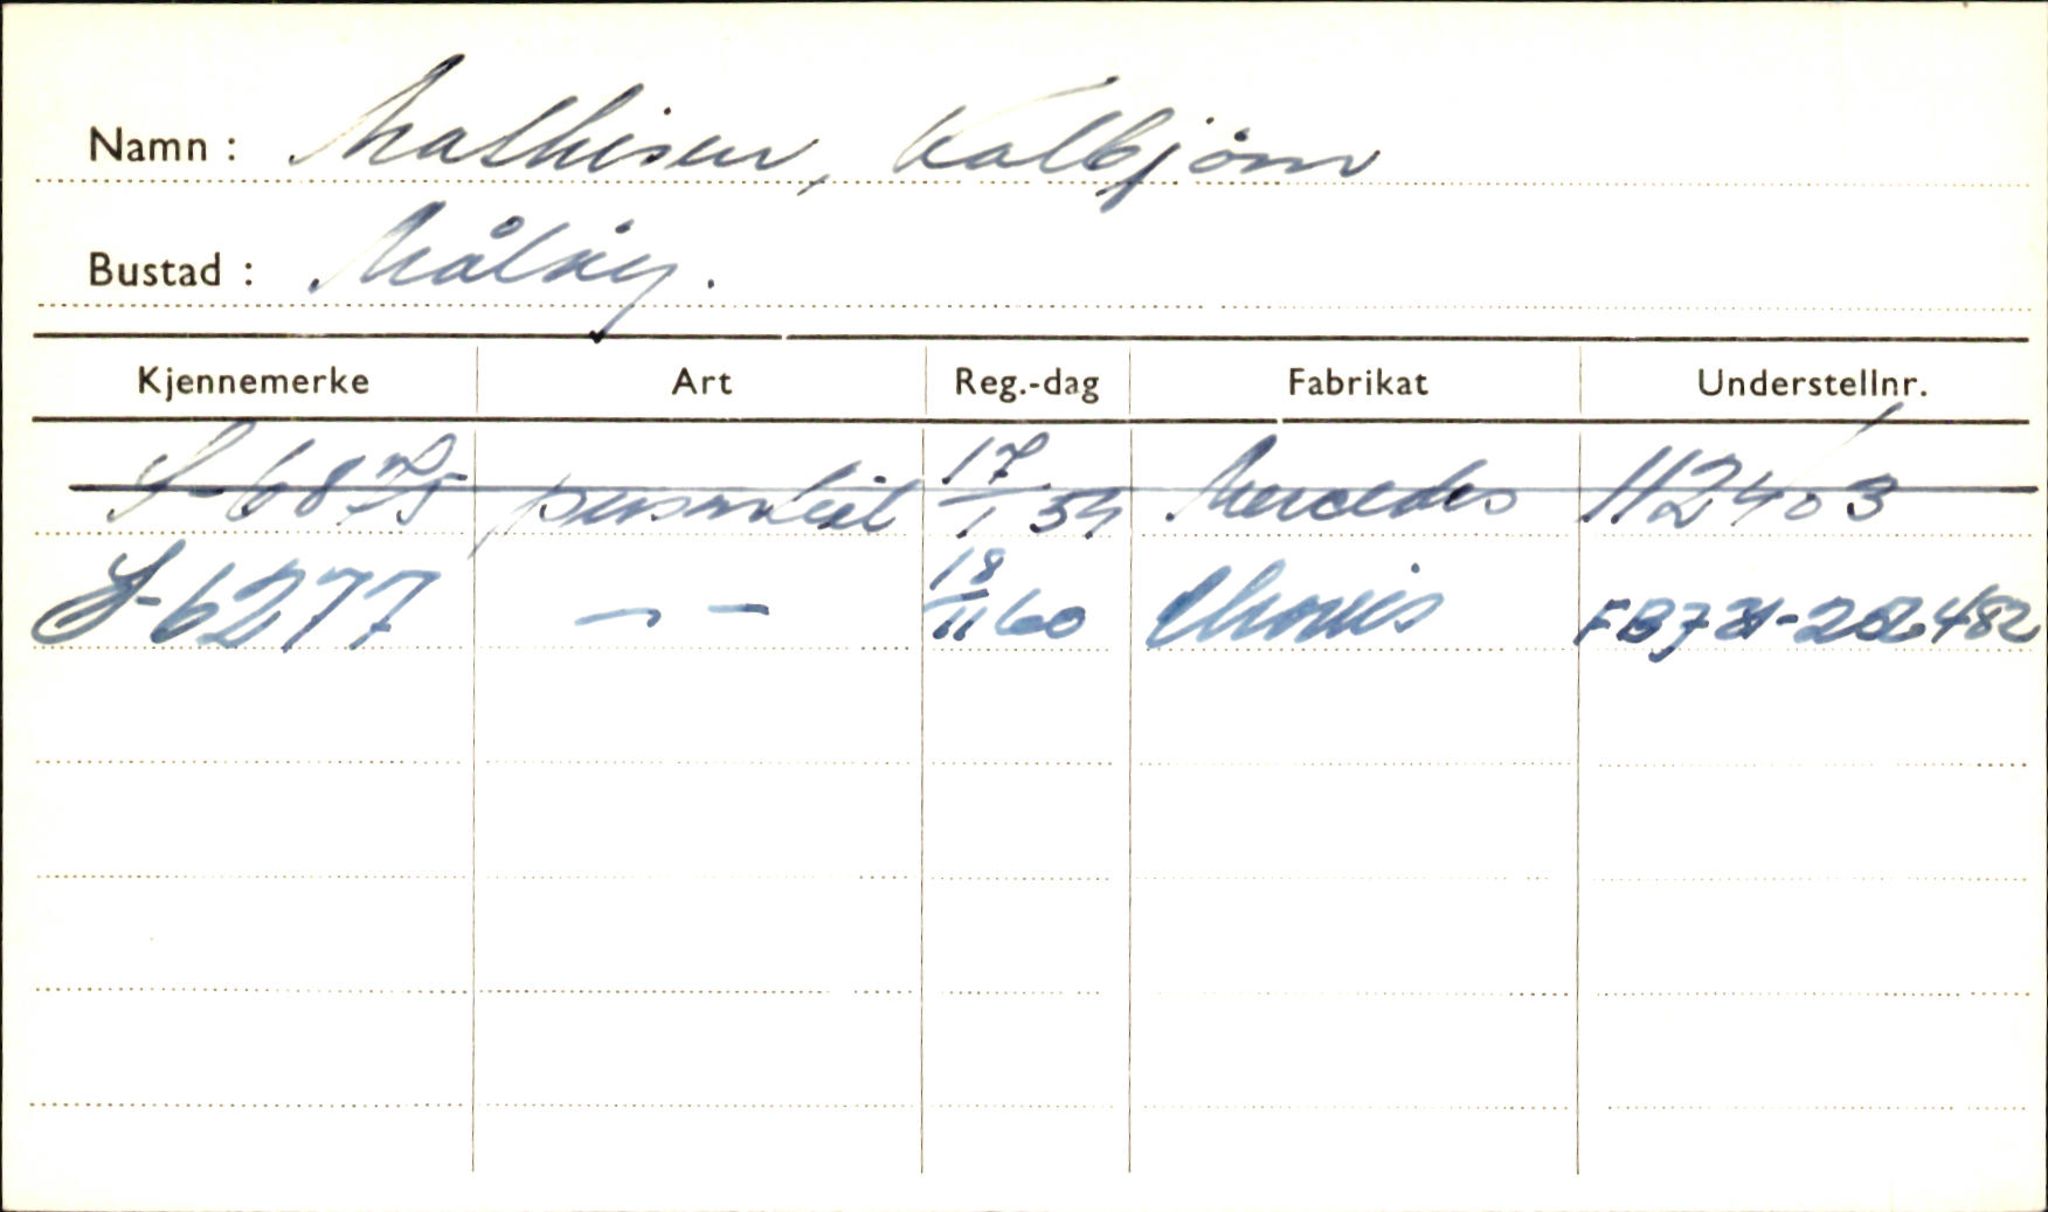 Namn : Mathisen, Kolbjörn
Bustad : Måløy.
Kjennemerke Art Reg.-dag Fabrikat Understellnr.
S-6875 personbil 17/1 54 Mercedes 112403
S-6277 — — 18/11 60 Morris FB7 31-202482